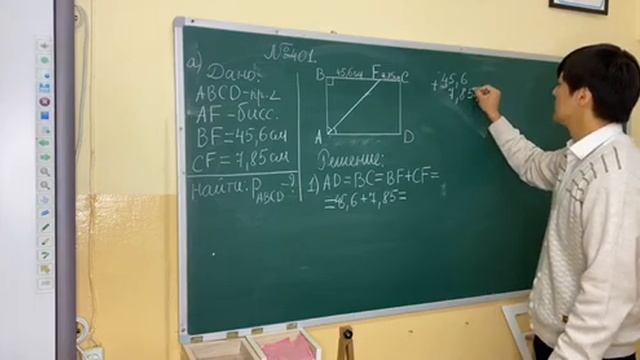 №401.
а) Дано:
ABCD-пр.∠
AF-бисс.
BF=45,6см
CF=7,85см
Найти: P_ABCD-?
B 45,6см F 7,85см C
A D
Решение:
1) AD=BC=BF+CF=
=45,6+7,85=
+45,6
7,85